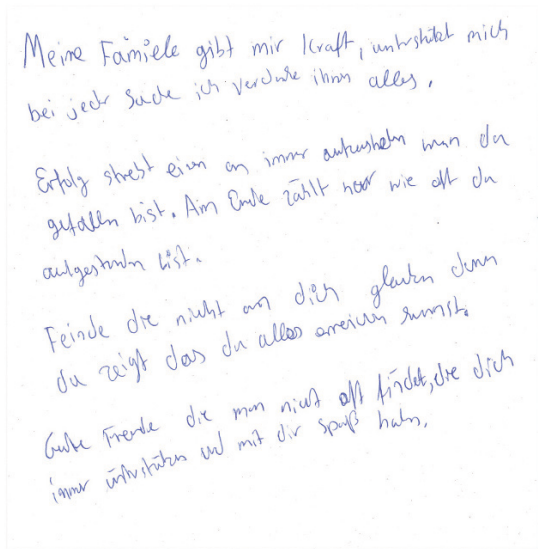 Meine Famiele gibt mir Kraft, unterstützt mich
bei jeder Sache ich verdanke ihnen alles.
Erfolg strebt einen an immer aufzustehen wenn du
gefallen bist. Am Ende zählt noor wie oft du
aufgestanden bist.
Feinde die nicht an dich glauben denen
du zeigt das du alles erreichen kannst.
Gute Freunde die man nicht oft findet, die dich
immer unterstützen und mit dir Spaß haben.